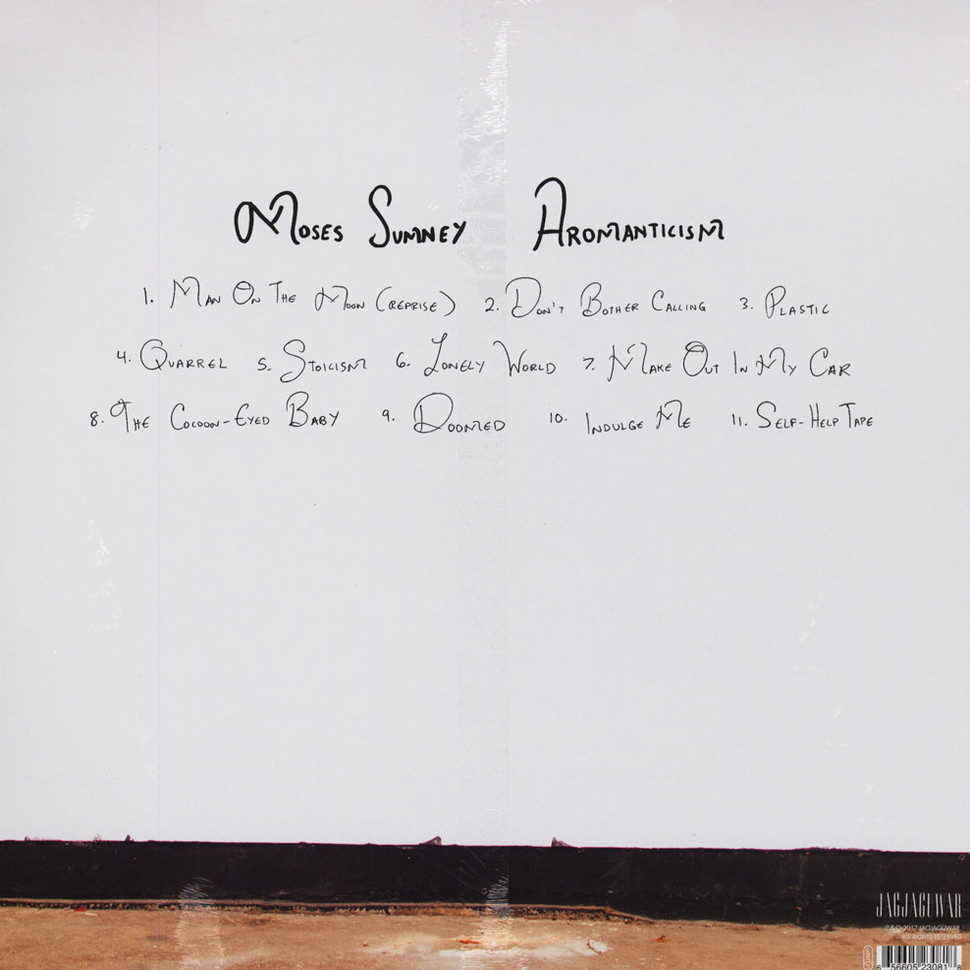 Moses Sumney Aromanticism
1. Man On The Moon (reprise) 2. Don't Bother Calling 3. Plastic
4. Quarrel 5. Stoicism 6. Lonely World 7. Make Out In My Car
8. The Cocoon-Eyed Baby 9. Doomed 10. Indulge Me 11. Self-Help Tape
JAGJAGUWAR
℗&© 2017 JAGJAGUWAR.
ALL RIGHTS RESERVED
6 56605 23081 8